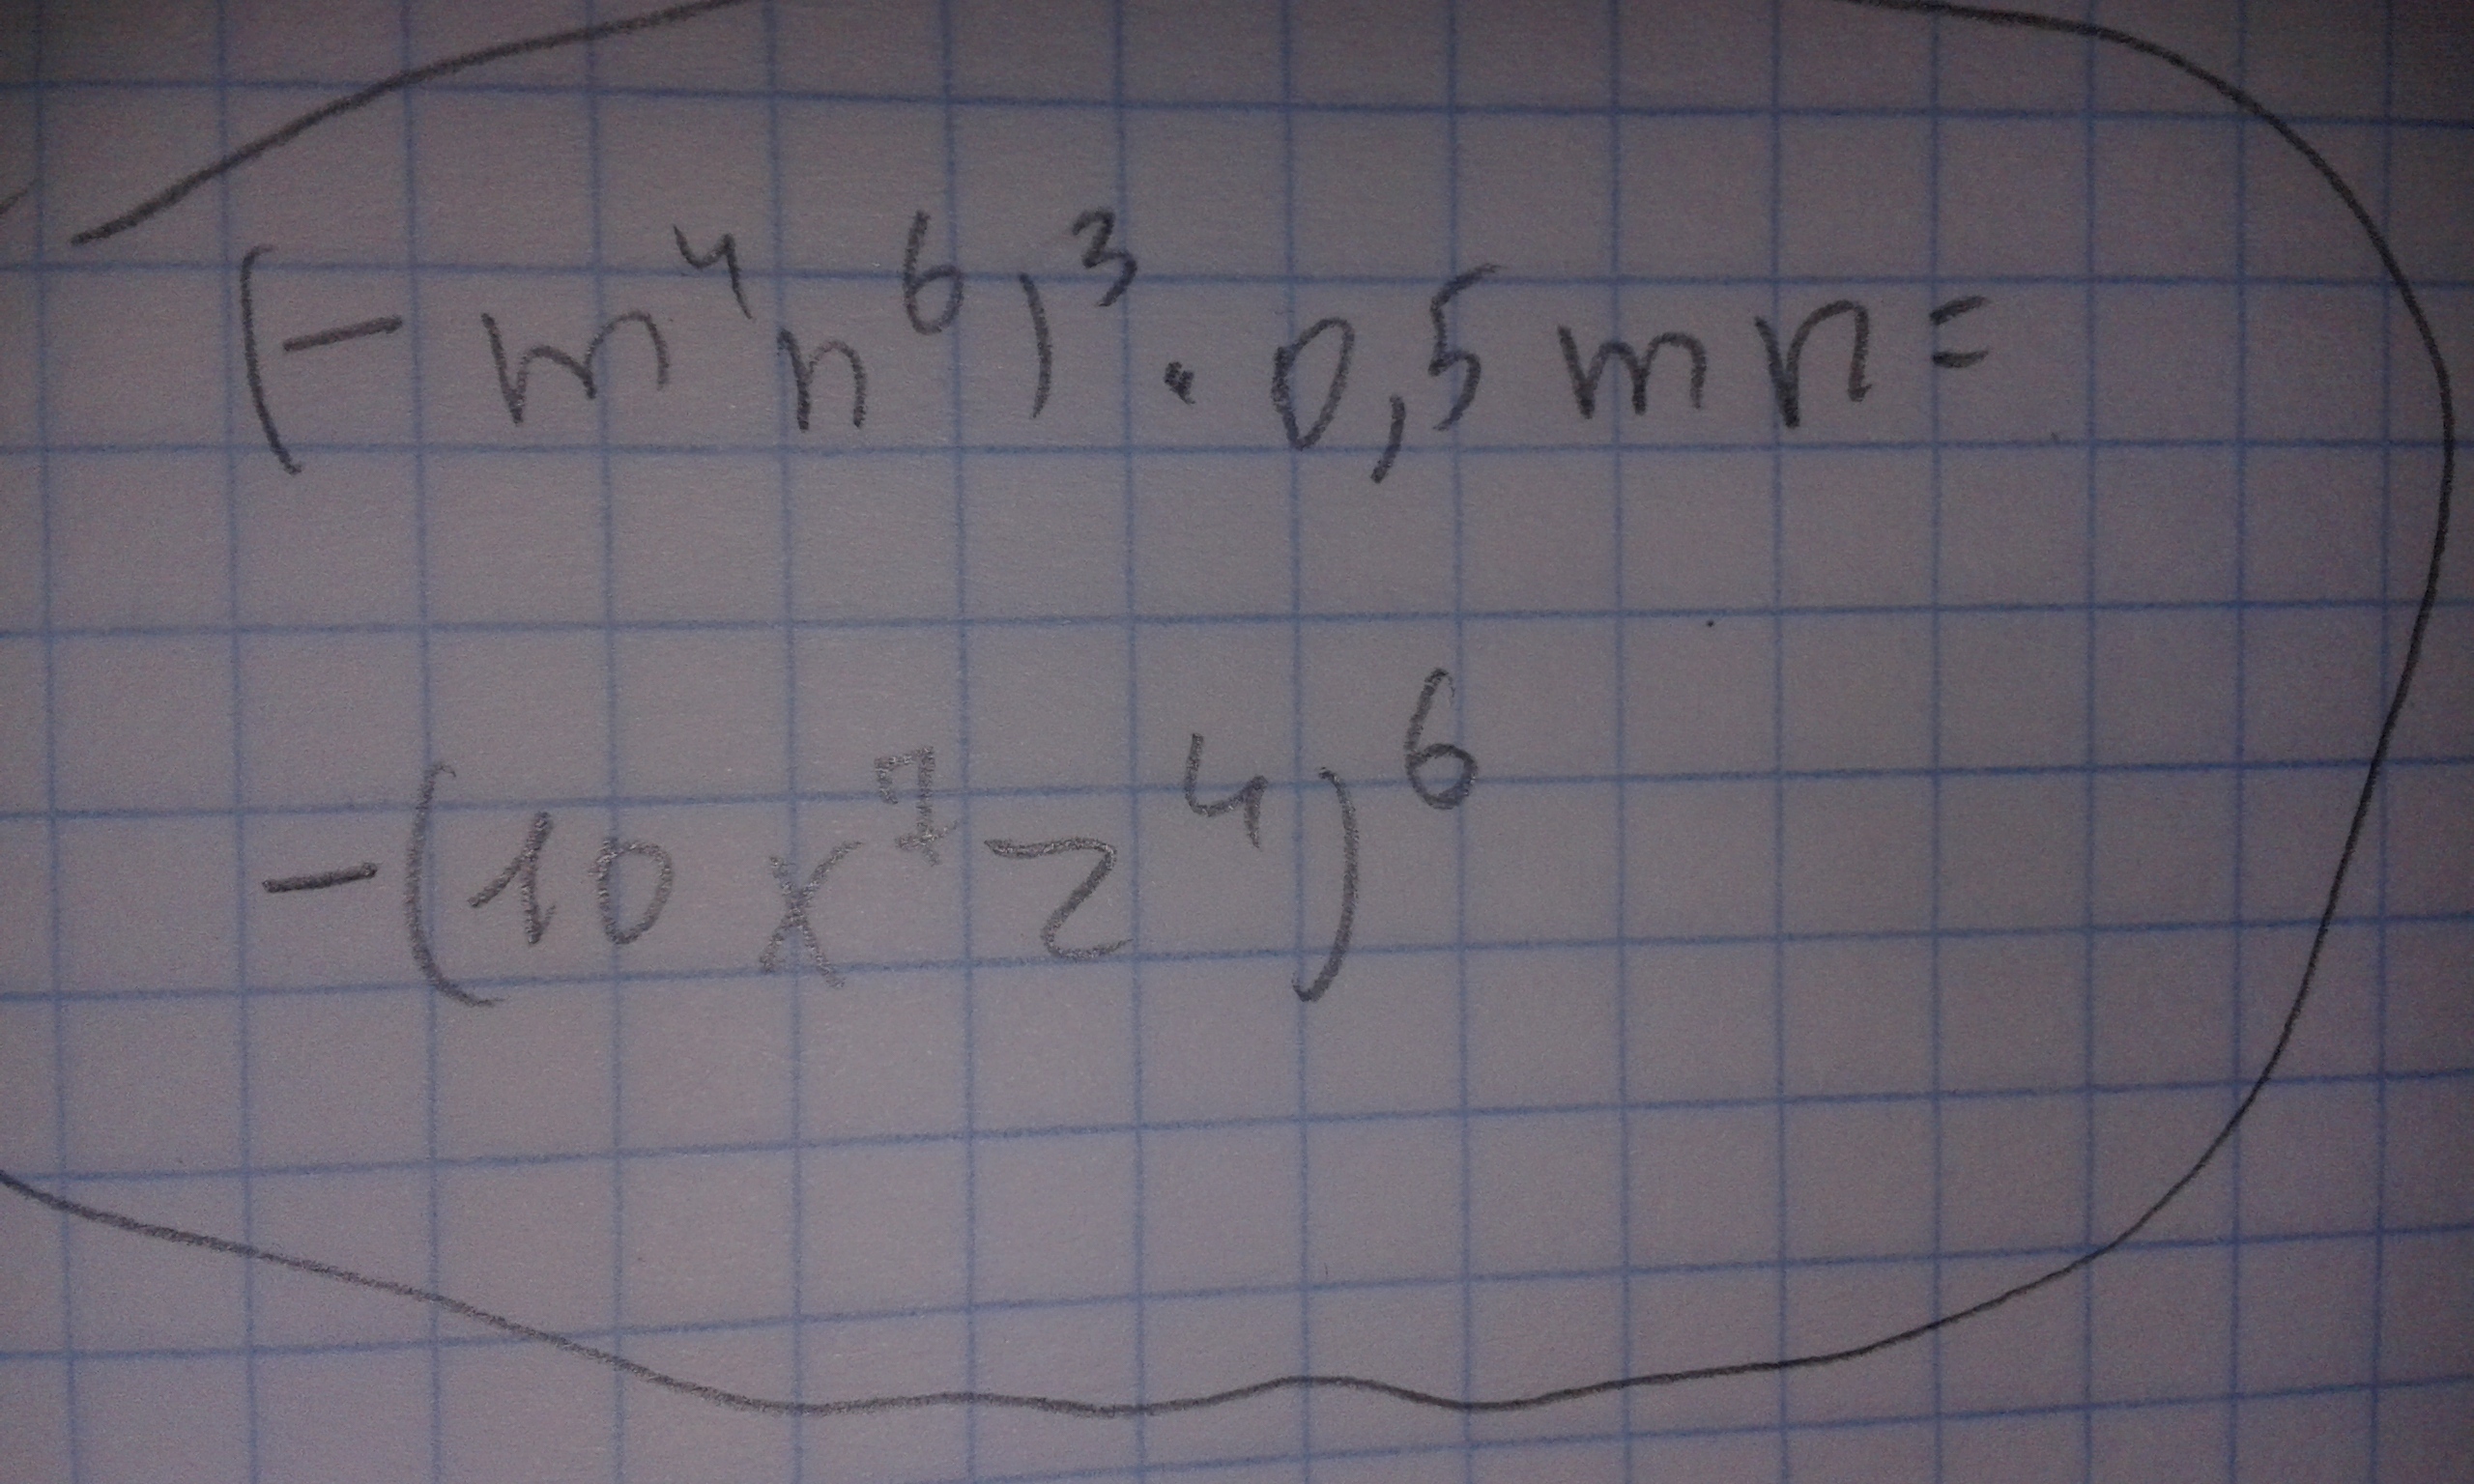 (-m⁴n⁶)³ · 0,5mn=
-(10x⁷z⁴)⁶